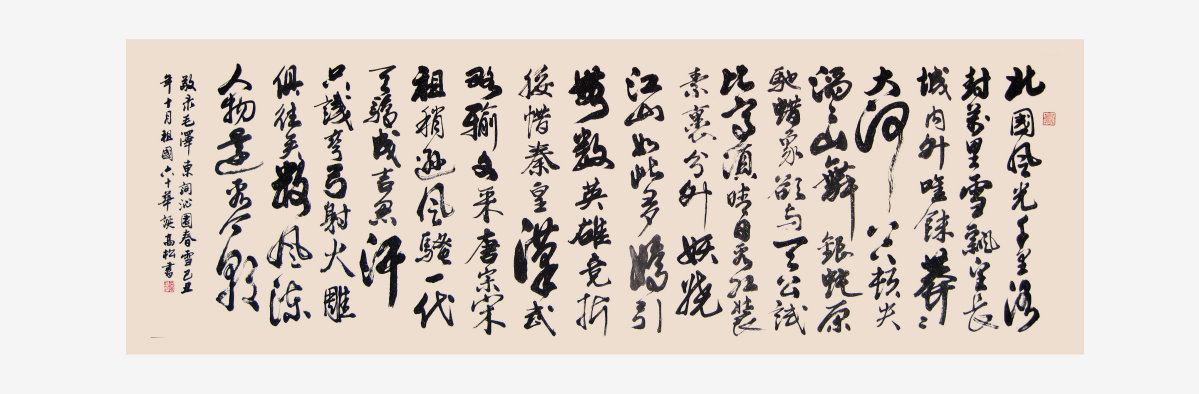 北國风光千里冰
封萬里雪飄望長
城内外唯餘莽々
大河上下頓失
滔々山舞銀蛇原
馳蜡象欲与天公試
比高須晴日看红装
素裹分外妖嬈
江山如此多嬌引
無数英雄竞折
腰惜秦皇漢武
略输文采唐宗宋
祖稍逊风騷一代
天驕成吉思汗
只識彎弓射大雕
俱往矣数风流
人物還看今朝
敬录毛澤東詞沁園春雪己丑
年十月祖國六十華誕高松書